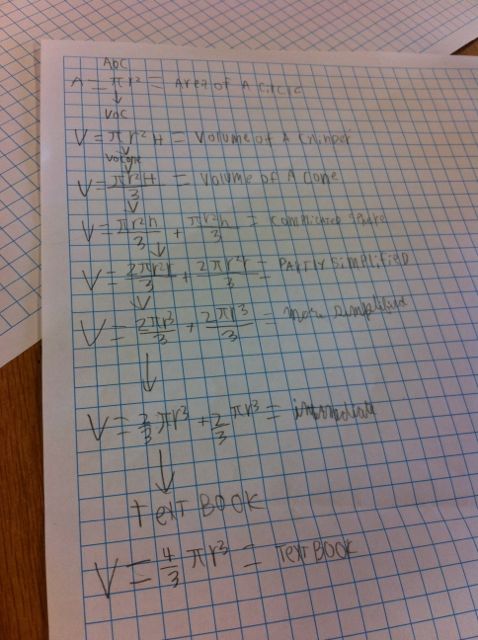 AOC
A = πr² = Area of A circle
↓
VOC
V = πr²H = Volume of A Cylinder
↓
V = πr²H/3 = Volume of A Cone
↓
V = πr²h/3 + πr²h/3 = complicated
↓
V = 2πr²r/3 + 2πr²r/3 = Partly Simplified
↓
V = 2πr³/3 + 2πr³/3 = more simplified
↓
V = 2/3 πr³ + 2/3 πr³ =
↓
text BOOK
V = 4/3 πr³ = text BOOK